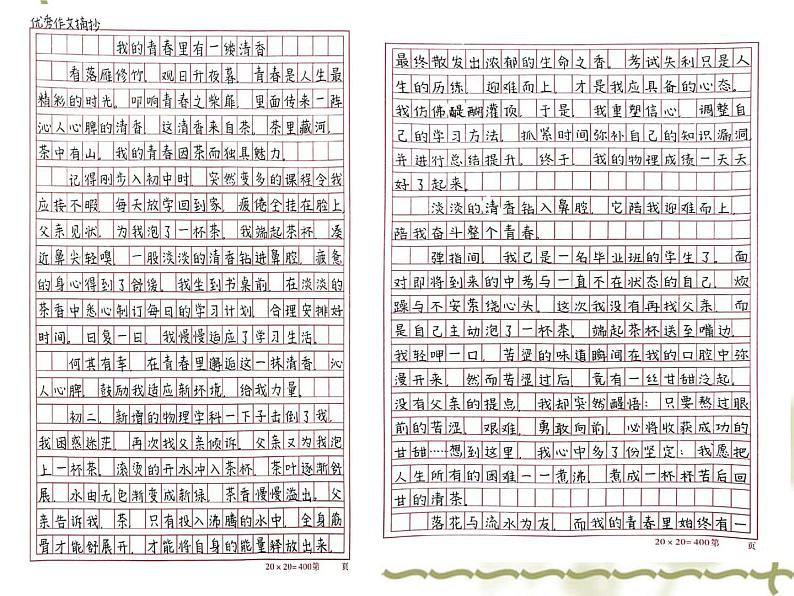 优秀作文摘抄
我的青春里有一缕清香
看落雁修竹，观日升夜暮，青春是人生最
精彩的时光。叩响青春之柴扉，里面传来一阵
沁人心脾的清香，这清香来自茶。茶里藏河，
茶中有山。我的青春因茶而独具魅力。
记得刚步入初中时，突然变多的课程令我
应接不暇，每天放学回到家，疲倦全挂在脸上，
父亲见状，为我泡了一杯茶。我端起茶，凑
近鼻尖轻嗅，一股淡淡的清香钻进鼻腔，疲惫
的身心得到了舒缓。我坐到书桌前，在淡淡的
茶香中悉心制订每日的学习计划，合理安排好
时间。日复一日，我慢慢适应了学习生活。
何其有幸，在青春里邂逅这一抹清香，沁
人心脾，鼓励我适应新环境，给我力量。
初二，新增的物理学科一下子击倒了我，
我困惑迷茫，再次找父亲倾诉。父亲又为我泡
上一杯茶。滚烫的开水冲入茶杯，茶叶逐渐舒
展，水由无色渐变成新绿，茶香慢慢溢出。父
亲告诉我，茶，只有投入沸腾的水中，全身筋
骨才能舒展开，才能将自身的能量释放出来，
20×20=400第 页
最终散发出浓郁的生命之香。考试失利只是人
生的历练，迎难而上，才是我应具备的心态。
我仿佛醍醐灌顶，于是，我重塑信心，调整自
己的学习方法，抓紧时间弥补自己的知识漏洞，
并进行总结提升。终于，我的物理成绩一天天
好了起来。
淡淡的清香钻入鼻腔，它陪我迎难而上，
陪我奋斗整个青春。
弹指间，我已是一名毕业班的学生了。面
对即将到来的中考与一直不在状态的自己，烦
躁与不安萦绕心头。这次我没有再找父亲，而
是自己主动泡了一杯茶。端起茶杯送至嘴边，
我轻呷一口，苦涩的味道瞬间在我的口腔中弥
漫开来，然而苦涩过后，竟有一丝甘甜泛起。
没有父亲的提点，我却突然醒悟：只要熬过眼
前的苦涩、艰难，勇敢向前，必将收获成功的
甘甜……想到这里，我心中多了份坚定：我愿把
人生所有的困难一一煮沸，煮成一杯杯苦后回
甘的清茶。
落花与流水为友，而我的青春里始终有一
20×20=400第 页